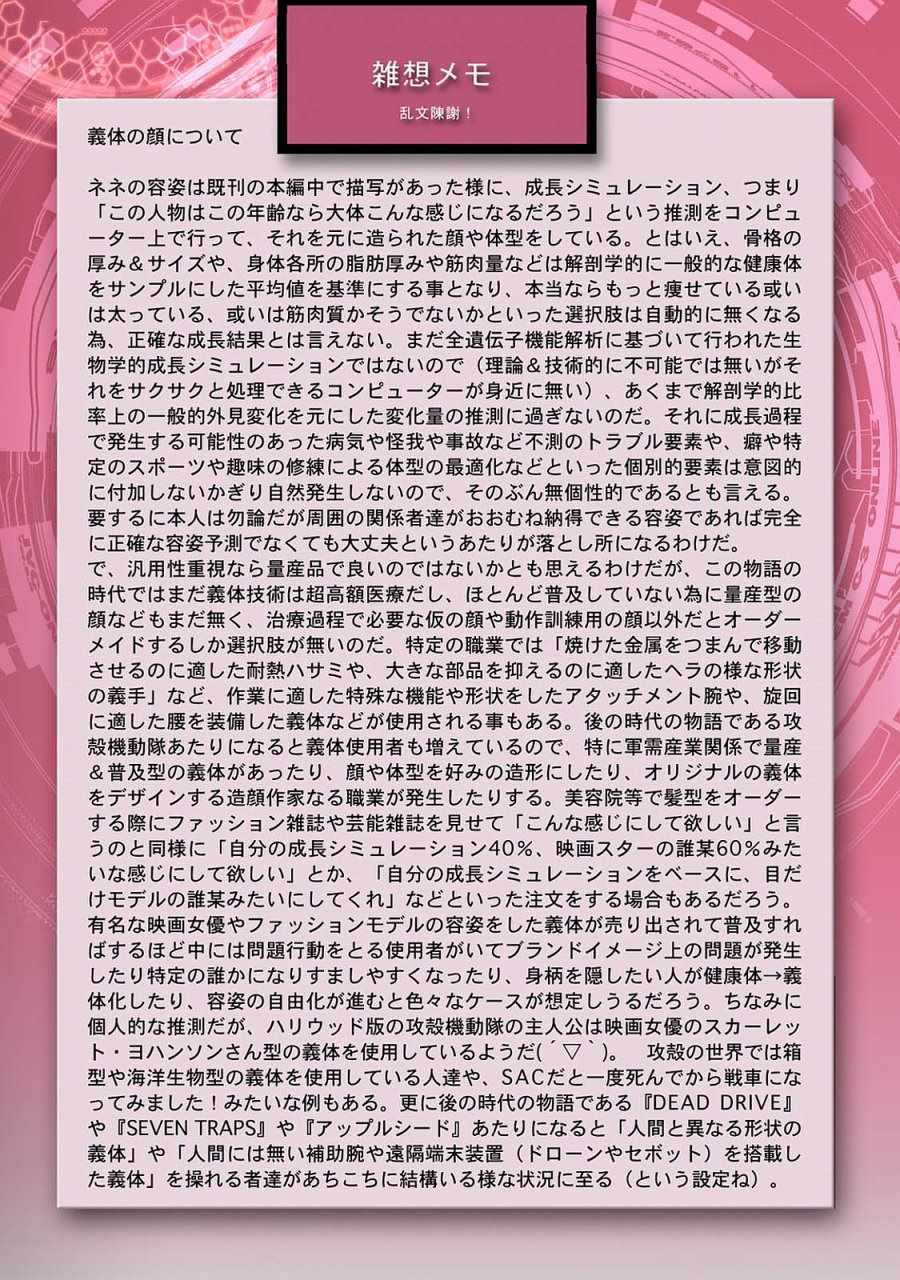 雑想メモ
乱文陳謝！
義体の顔について
ネネの容姿は既刊の本編中で描写があった様に、成長シミュレーション、つまり
「この人物はこの年齢なら大体こんな感じになるだろう」という推測をコンピュ
ーター上で行って、それを元に造られた顔や体型をしている。とはいえ、骨格の
厚み＆サイズや、身体各所の脂肪厚みや筋肉量などは解剖学的に一般的な健康体
をサンプルにした平均値を基準にする事となり、本当ならもっと痩せている或い
は太っている、或いは筋肉質かそうでないかといった選択肢は自動的に無くなる
為、正確な成長結果とは言えない。まだ全遺伝子機能解析に基づいて行われた生
物学的成長シミュレーションではないので（理論＆技術的に不可能では無いがそ
れをサクサクと処理できるコンピューターが身近に無い）、あくまで解剖学的比
率上の一般的外見変化を元にした変化量の推測に過ぎないのだ。それに成長過程
で発生する可能性のあった病気や怪我や事故など不測のトラブル要素や、癖や特
定のスポーツや趣味の修練による体型の最適化などといった個別的要素は意図的
に付加しないかぎり自然発生しないので、そのぶん無個性的であるとも言える。
要するに本人は勿論だが周囲の関係者達がおおむね納得できる容姿であれば完全
に正確な容姿予測でなくても大丈夫というあたりが落とし所になるわけだ。
で、汎用性重視なら量産品で良いのではないかとも思えるわけだが、この物語の
時代ではまだ義体技術は超高額医療だし、ほとんど普及していない為に量産型の
顔などもまだ無く、治療過程で必要な仮の顔や動作訓練用の顔以外だとオーダー
メイドするしか選択肢が無いのだ。特定の職業では「焼けた金属をつまんで移動
させるのに適した耐熱ハサミや、大きな部品を抑えるのに適したヘラの様な形状
の義手」など、作業に適した特殊な機能や形状をしたアタッチメント腕や、旋回
に適した腰を装備した義体などが使用される事もある。後の時代の物語である攻
殻機動隊あたりになると義体使用者も増えているので、特に軍需産業関係で量産
＆普及型の義体があったり、顔や体型を好みの造形にしたり、オリジナルの義体
をデザインする造顔作家なる職業が発生したりする。美容院等で髪型をオーダー
する際にファッション雑誌や芸能雑誌を見せて「こんな感じにして欲しい」と言
うのと同様に「自分の成長シミュレーション40％、映画スターの誰某60％みた
いな感じにして欲しい」とか、「自分の成長シミュレーションをベースに、目だ
けモデルの誰某みたいにしてくれ」などといった注文をする場合もあるだろう。
有名な映画女優やファッションモデルの容姿をした義体が売り出されて普及すれ
ばするほど中には問題行動をとる使用者がいてブランドイメージ上の問題が発生
したり特定の誰かになりすましやすくなったり、身柄を隠したい人が健康体→義
体化したり、容姿の自由化が進むと色々なケースが想定しうるだろう。ちなみに
個人的な推測だが、ハリウッド版の攻殻機動隊の主人公は映画女優のスカーレッ
ト・ヨハンソンさん型の義体を使用しているようだ(´▽｀)。　攻殻の世界では箱
型や海洋生物型の義体を使用している人達や、SACだと一度死んでから戦車にな
ってみました！みたいな例もある。更に後の時代の物語である『DEAD DRIVE』
や『SEVEN TRAPS』や『アップルシード』あたりになると「人間と異なる形状の
義体」や「人間には無い補助腕や遠隔端末装置（ドローンやセボット）を搭載し
た義体」を操れる者達があちこちに結構いる様な状況に至る（という設定ね）。
ONLINE